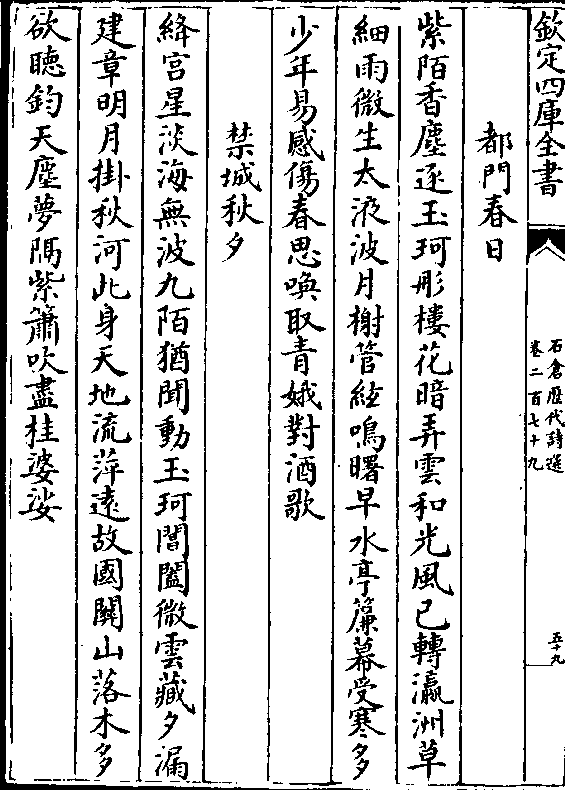 欽定四庫全書
石倉歷代詩選
卷二百七十九
五十九
都門春日
紫陌香塵逐玉珂彤樓花暗弄雲和光風已轉瀛洲草
細雨微生太液波月榭管絃鳴曙早水亭簾幕受寒多
少年易感傷春思喚取青娥對酒歌
禁城秋夕
絳宫星淡海無波九陌猶聞動玉珂閶闔微雲藏夕漏
建章明月掛秋河此身天地流萍遠故國關山落木多
欲聽鈞天塵夢隔紫簫吹盡桂婆娑